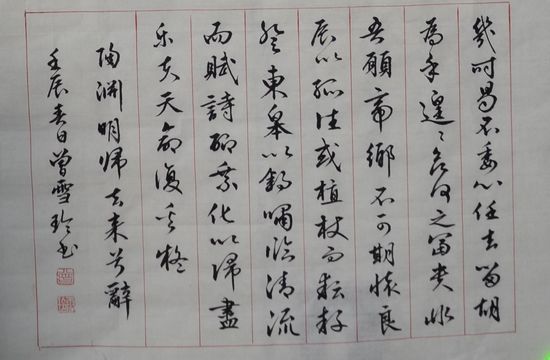 幾时曷不委心任去留胡
為乎遑々欲何之富贵非
吾願帝鄉不可期懷良
辰以孤往或植杖而耘耔
登東皋以舒嘯临清流
而賦詩聊乘化以归盡
乐夫天命復奚疑
陶渊明归去来兮辭
壬辰春日曾雪玲书